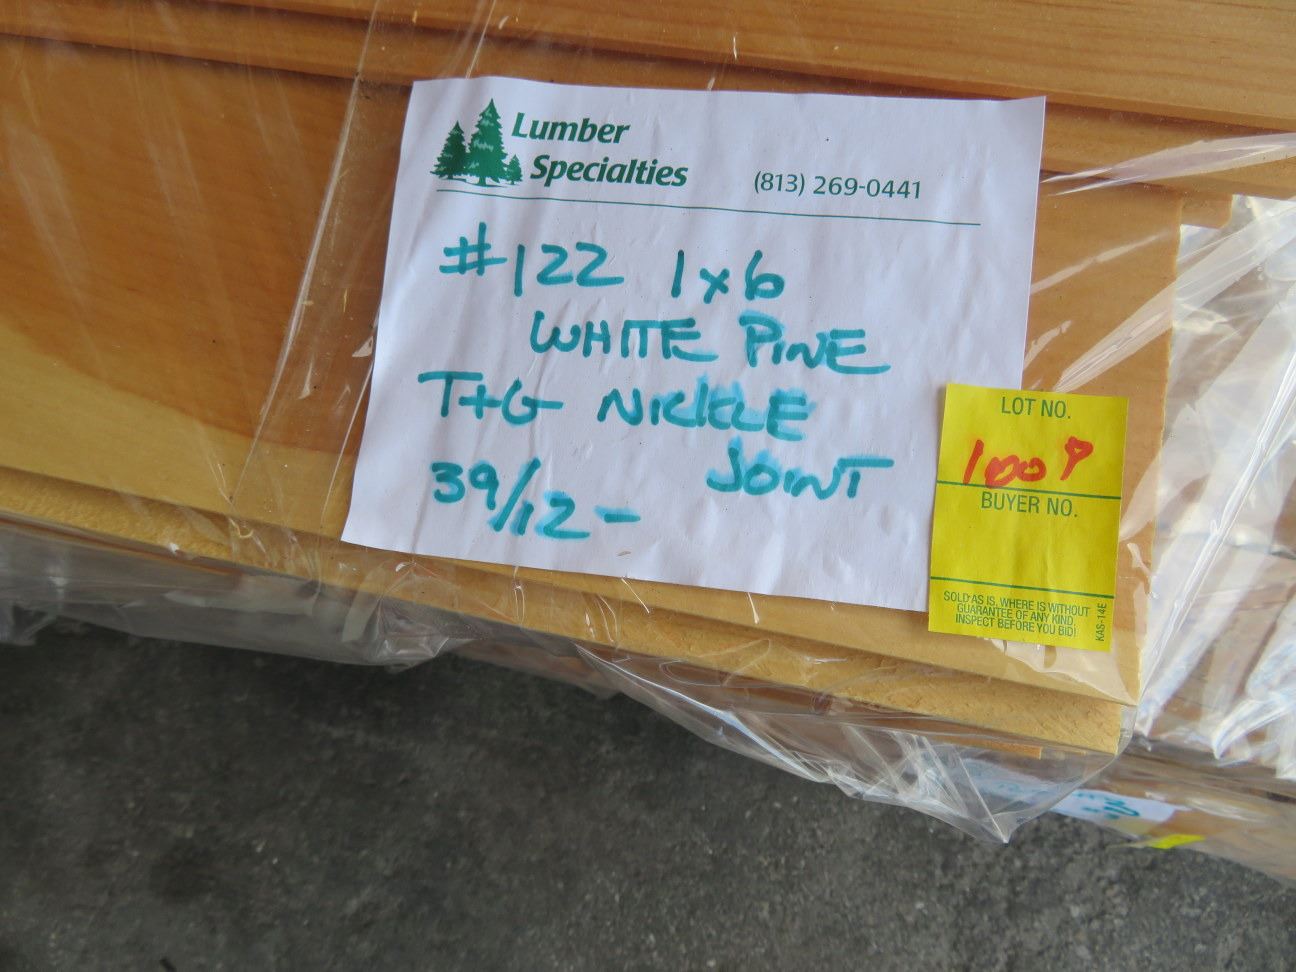 Lumber
Specialties
(813) 269-0441
#122 1x6
WHITE PINE
T+G NICKLE
JOINT
39/12-
LOT NO.
1009
BUYER NO.
SOLD AS IS, WHERE IS WITHOUT
GUARANTEE OF ANY KIND.
INSPECT BEFORE YOU BID!
KAS-14E